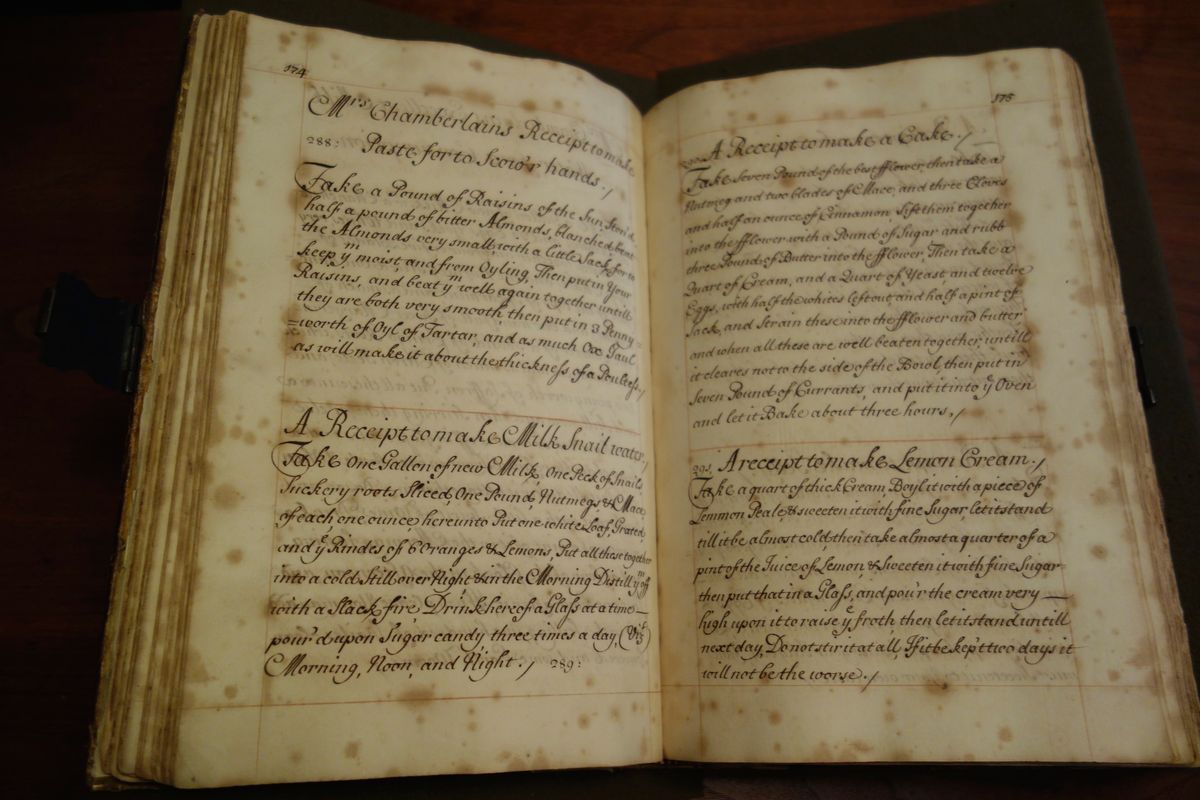 174
Mrs Chamberlains Receipt to make
288: Paste for to Scow'r hands./
Take a Pound of Raisins of the Sun, Ston'd
half a pound of bitter Almonds, blanched beat
the Almonds very small, with a little Sack, for to
keep ym moist, and from Oyling, Then put in Your
Raisins, and beat ym well again together untill
they are both very smooth, then put in 3 Penny=
=worth of Oyl of Tartar, and as much Ox Gaul
as will make it about the thickness of a Poultess./
A Receipt to make Milk Snail water./
Take One Gallon of new Milk, One Peck of Snails
Suckery roots Sliced, One Pound, Nutmegs, & Mace
of each one ounce, hereunto Put one white Loaf, Grated,
and ye Rindes of 6 Oranges & Lemons, Put all these together
into a cold Still over Night & in the Morning Distill ym off
with a Slack fire, Drink hereof a Glass at a time
pour'd upon Sugar candy three times a day, (Vizt)
Morning, Noon, and Night./ 289:
175
290. A Receipt to make a Cake./
Take Seven Pound of the best fflower, then take a
Nutmeg and two blades of Mace, and three Cloves
and half an ounce of Cinnamon, Sift them together
into the fflower with a Pound of Sugar and rubb
three Pound of Butter into the fflower, Then take a
Quart of Cream, and a Quart of Yeast, and twelve
Eggs, with half the whites left out, and half a pint of
Sack, and Strain these into the fflower and butter
and when all these are well beaten together, untill
it cleares not to the side of the Bowl, then put in
Seven Pound of Currants, and put it into ye Oven
and let it Bake about three hours./
291. A receipt to make Lemon Cream./
Take a quart of thick Cream, Boyl it with a piece of
Lemmon Peale, & sweeten it with fine Sugar, let it stand
till it be almost cold, then take almost a quarter of a
pint of the Juice of Lemon & Sweeten it with fine Sugar
then put that in a Glass, and pou'r the cream very
high upon it to raise ye froth, then let it stand untill
next day, Do not stir it at all, If it be kep't two days it
will not be the worse./